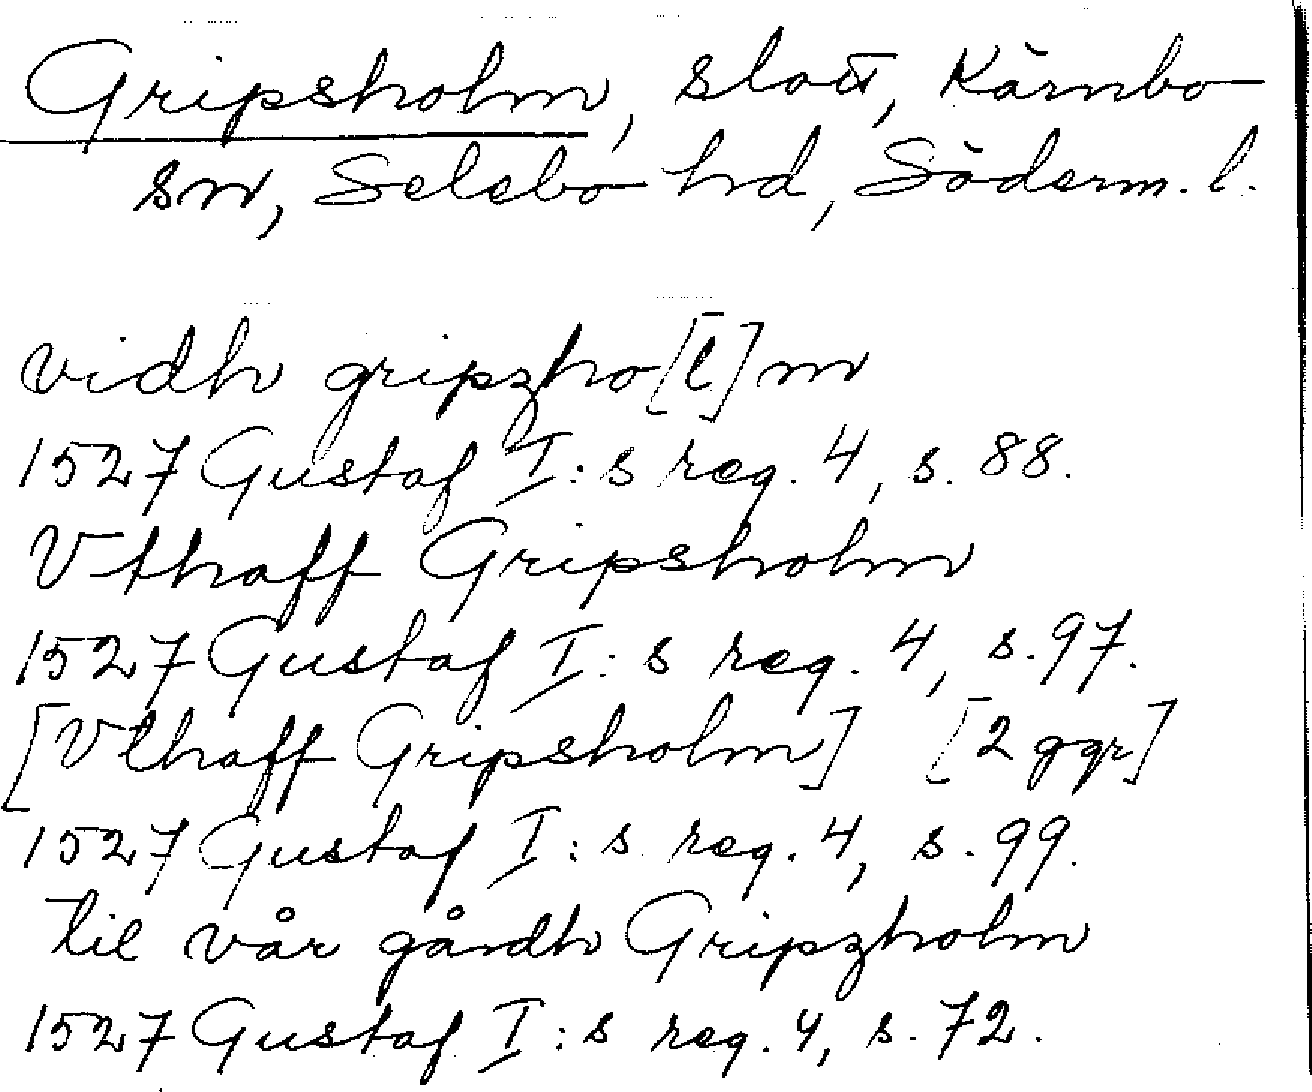 Gripsholm, slott, Kärnbo
sn, Selebo hd, Söderm. l.
vidh gripzho[l]m
1527 Gustaf I:s reg. 4, s. 88.
Vthaff Gripsholm
1527 Gustaf I:s reg. 4, s. 97.
[Vthaff Gripsholm] [2 ggr]
1527 Gustaf I:s reg. 4, s. 99.
til vår gårdh Gripzholm
1527 Gustaf I:s reg. 4, s. 72.